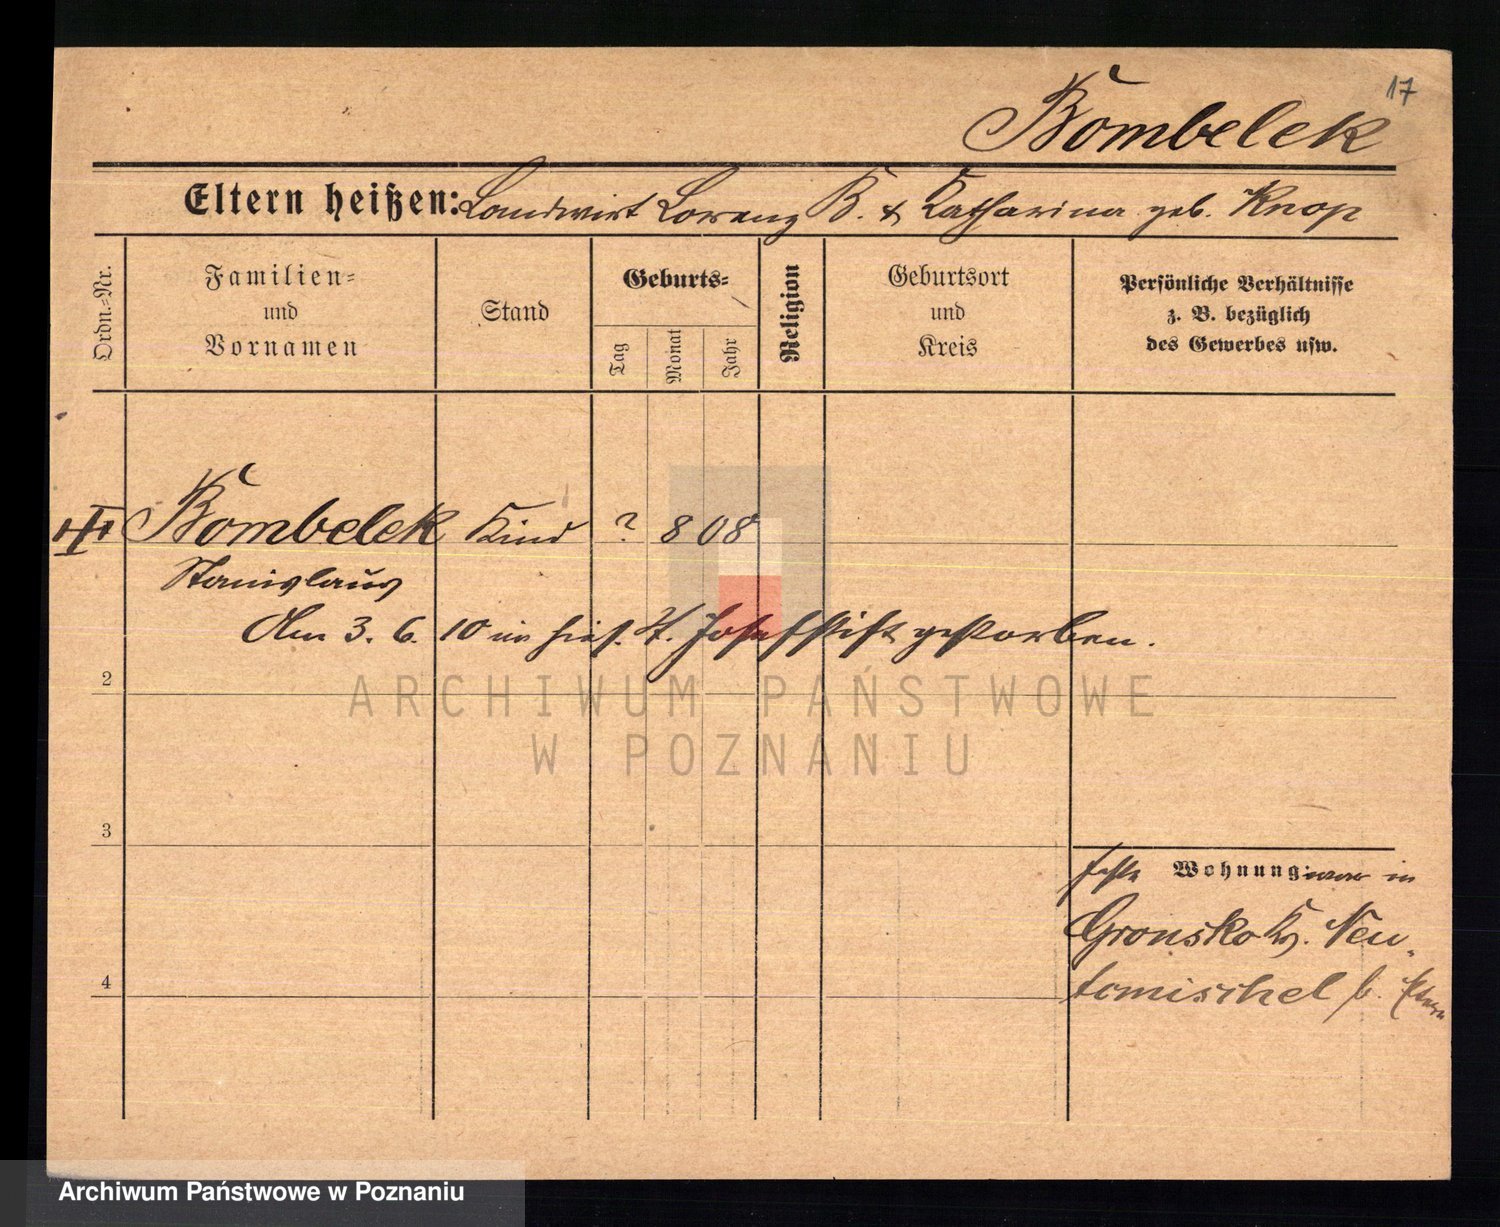 17
Bombelek
Eltern heißen: Landwirt Lorenz B. & Katharina geb. Knop
Ordn.-Nr.
Familien-
und
Vornamen
Stand
Geburts-
Tag
Monat
Jahr
Religion
Geburtsort
und
Kreis
Persönliche Verhältnisse
z. B. bezüglich
des Gewerbes usw.
Bombelek Kind ? 8 08
Stanislaus
Am 3. 6. 10 im hies. St. Josefstift gestorben.
2
ARCHIWUM PAŃSTWOWE
W POZNANIU
3
feste Wohnung: war in
Gronsko Kr. Neu-
4
tomischel b.
Archiwum Państwowe w Poznaniu